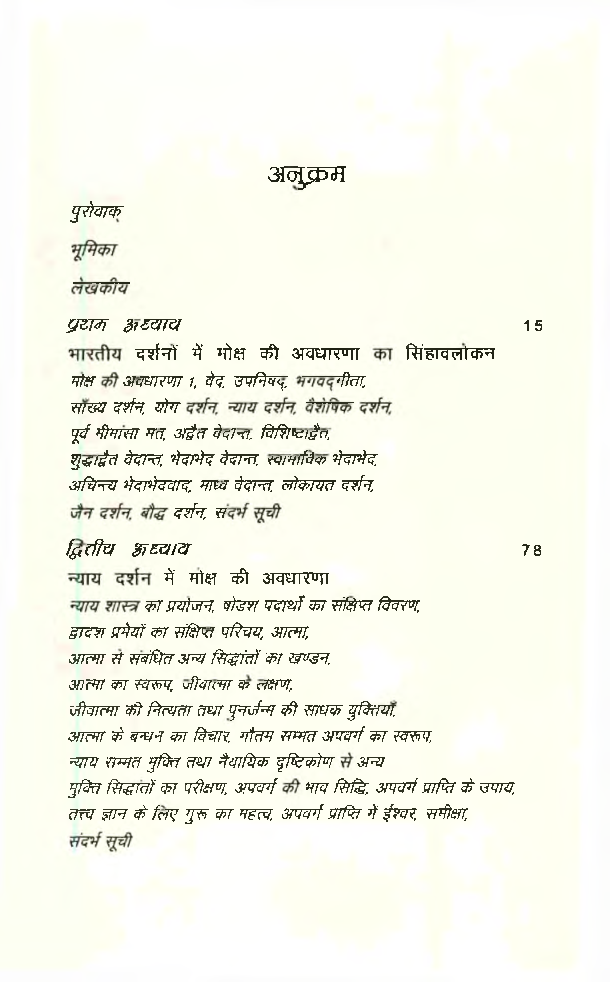 अनुक्रम
पुरोवाक्
भूमिका
लेखकीय
प्रथम अध्याय 15
भारतीय दर्शनों में मोक्ष की अवधारणा का सिंहावलोकन
मोक्ष की अवधारणा 1, वेद, उपनिषद्, भगवद्गीता,
साँख्य दर्शन, योग दर्शन, न्याय दर्शन, वैशेषिक दर्शन,
पूर्व मीमांसा मत, अद्वैत वेदान्त, विशिष्टाद्वैत,
शुद्धाद्वैत वेदान्त, भेदाभेद वेदान्त, स्वाभाविक भेदाभेद,
अचिन्त्य भेदाभेदवाद, माध्व वेदान्त, लोकायत दर्शन,
जैन दर्शन, बौद्ध दर्शन, संदर्भ सूची
द्वितीय अध्याय 78
न्याय दर्शन में मोक्ष की अवधारणा
न्याय शास्त्र का प्रयोजन, षोडश पदार्थों का संक्षिप्त विवरण,
द्वादश प्रमेयों का संक्षिप्त परिचय, आत्मा,
आत्मा से संबंधित अन्य सिद्धांतों का खण्डन,
आत्मा का स्वरूप, जीवात्मा के लक्षण,
जीवात्मा की नित्यता तथा पुनर्जन्म की साधक युक्तियाँ,
आत्मा के बन्धन का विचार, गौतम सम्मत अपवर्ग का स्वरूप,
न्याय सम्मत मुक्ति तथा नैयायिक दृष्टिकोण से अन्य
मुक्ति सिद्धांतों का परीक्षण, अपवर्ग की भाव सिद्धि, अपवर्ग प्राप्ति के उपाय,
तत्त्व ज्ञान के लिए गुरू का महत्व, अपवर्ग प्राप्ति में ईश्वर, समीक्षा,
संदर्भ सूची